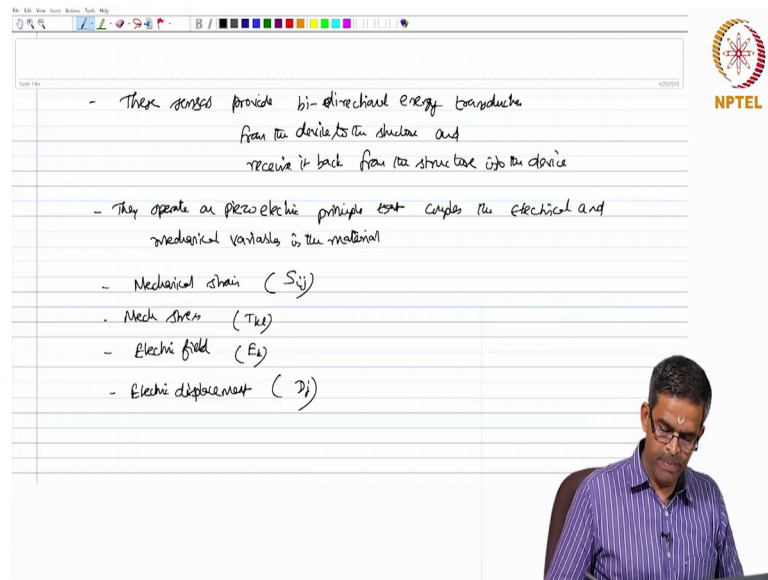 File Edit View Insert Actions Tools Help
B I
Note Title
NPTEL
- These senses provide bi-directional energy transduction
from the device to the structure and
receive it back from the structure into the device
- They operate on piezo electric principle that couples the electrical and
mechanical variables is the material
- Mechanical strain (Sij)
- Mech stress (Tkl)
- Electric field (Ek)
- Electric displacement (Dj)